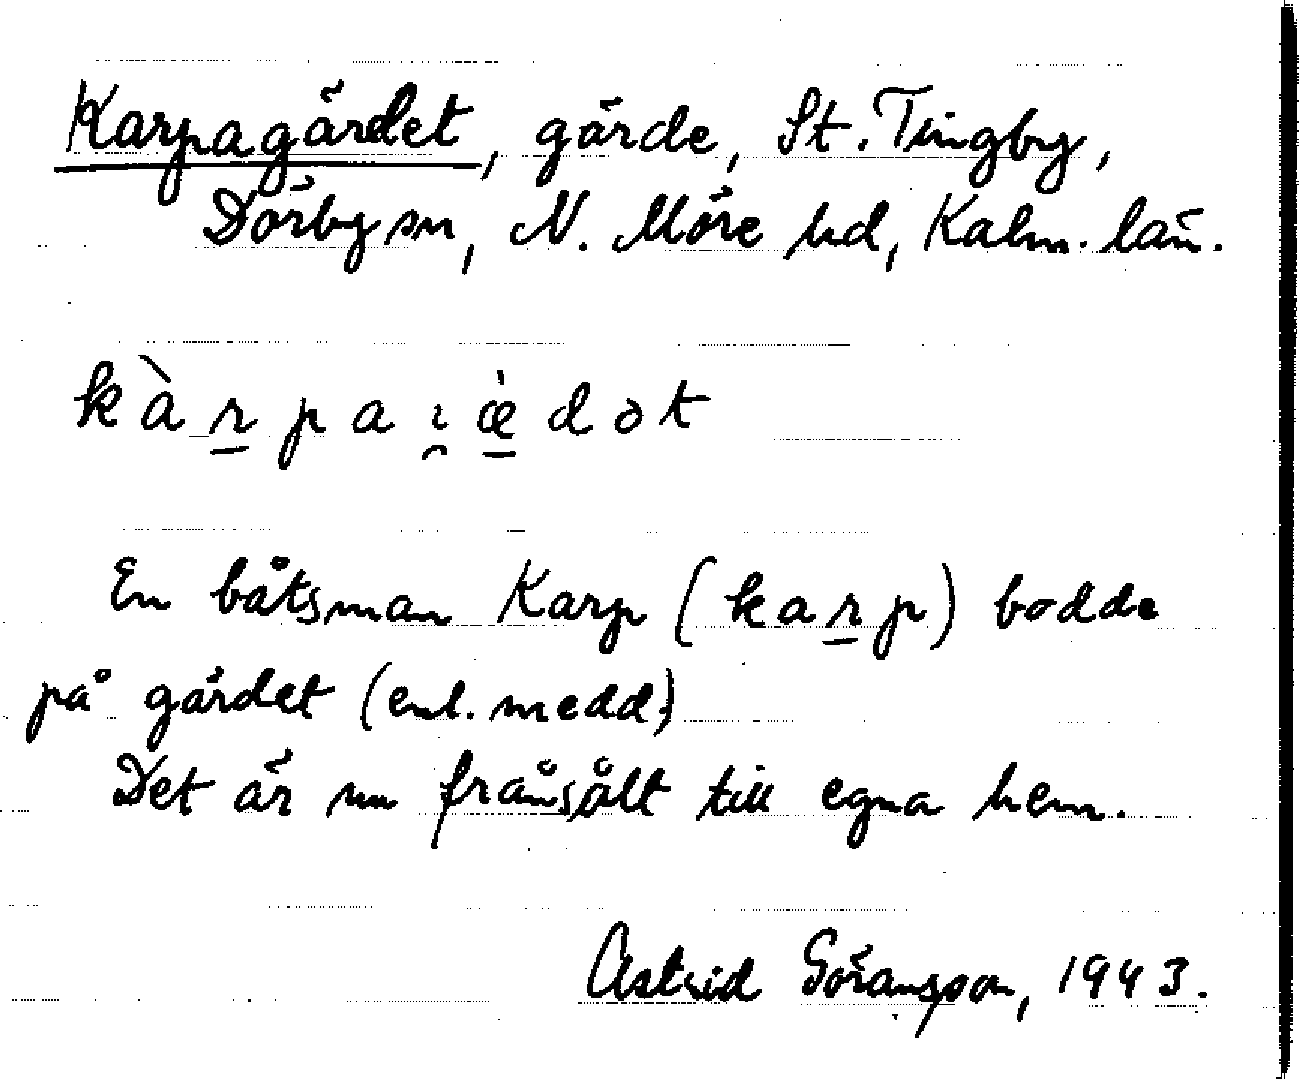 Karpagärdet, gärde, St. Tingby,
Dörby sn, N. Möre hd, Kalm. län.
kàr̠paı̯æ̠̍dət
En båtsman Karp (kar̠p) bodde
på gärdet (enl. medd)
Det är nu frånsålt till egna hem.
Astrid Göransson, 1943.